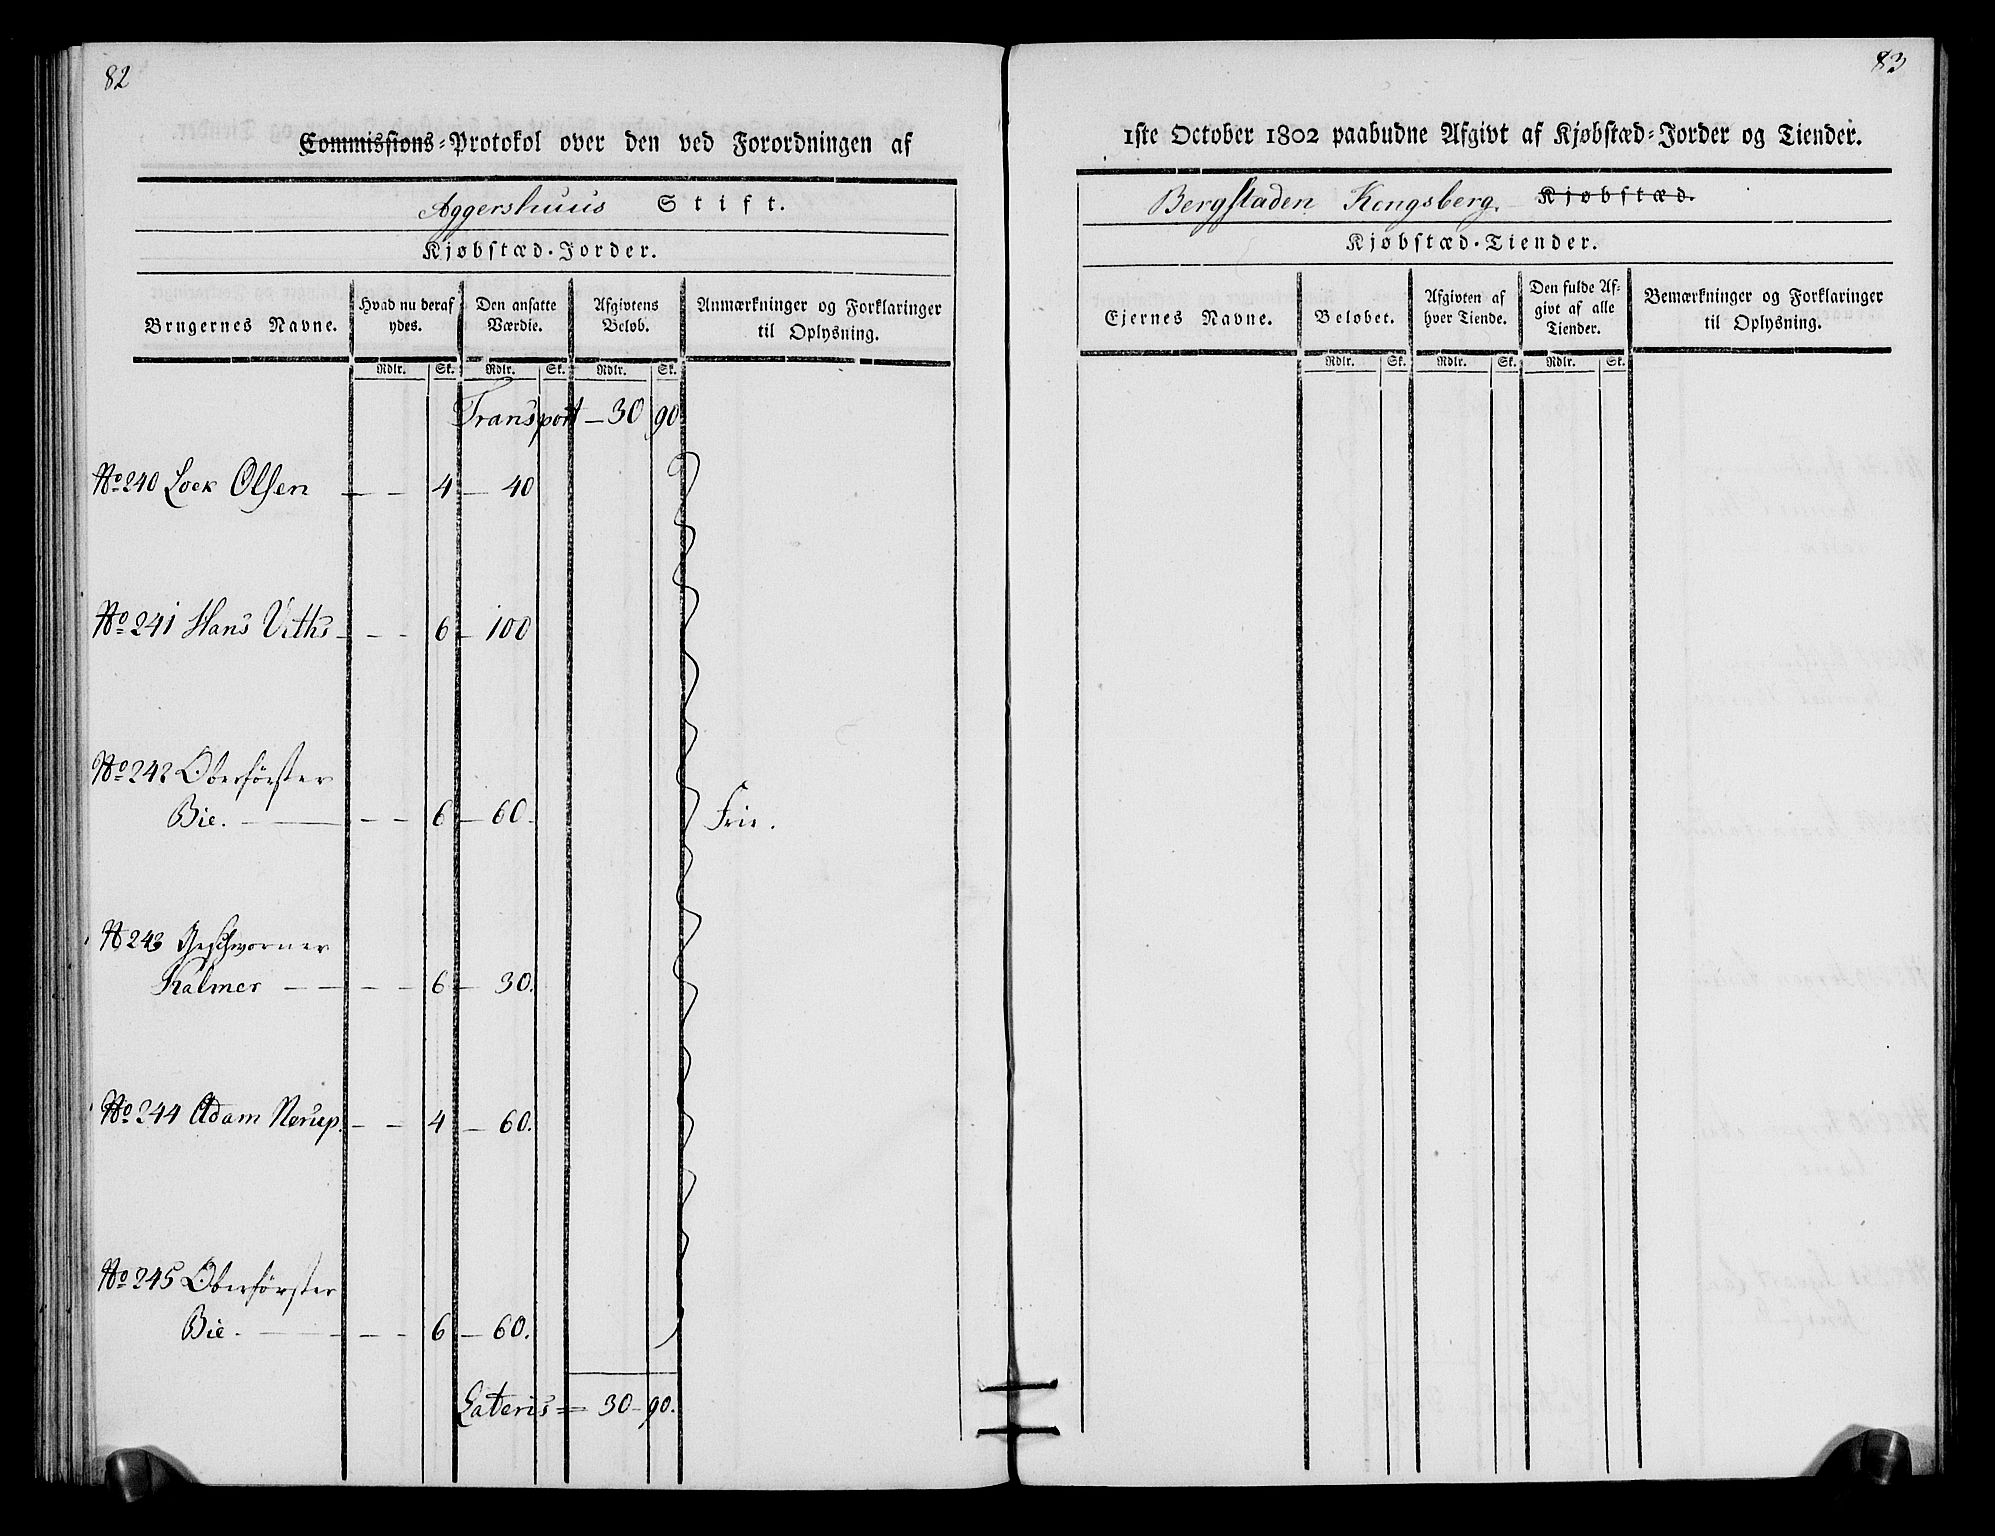 82
Commissions-Protokol over den ved Forordningen af
Aggershuus Stift.
Kjøbstæd-Jorder.
Brugernes Navne.
Hvad nu deraf ydes.
Den ansatte Værdie.
Afgivtens Beløb.
Anmærkninger og Forklaringer til Oplysning.
Rdlr. Sk. Rdlr. Sk. Rdlr. Sk.
Transport — 30 90
No 240 Loek Olsen — — 4 — 40
No 241 Hans Viths — — 6 — 100
No 242 Oberförster
Bie. — — — 6 — 60. Frie.
N 243 Geschworner
Kalmer — — — — 6 — 30.
No 244 Adam Nerup. — — 4 — 60.
No 245 Oberförster
Bie. — — — — 6 — 60.
Lateris = 30 — 90.
83
1ste October 1802 paabudne Afgivt af Kjøbstæd-Jorder og Tiender.
Bergstaden Kongsberg. Kjøbstæd.
Kjøbstæd-Tiender.
Ejernes Navne.
Beløbet.
Afgivten af hver Tiende.
Den fulde Afgivt af alle Tiender.
Bemærkninger og Forklaringer til Oplysning.
Rdlr. Sk. Rdlr. Sk. Rdlr. Sk.